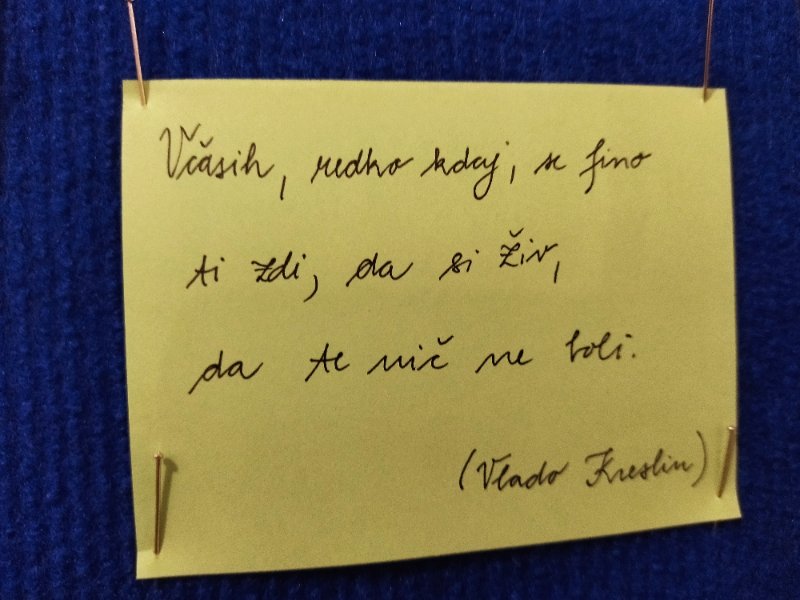 Včasih, redko kdaj, se fino
ti zdi, da si živ,
da te nič ne boli.
(Vlado Kreslin)